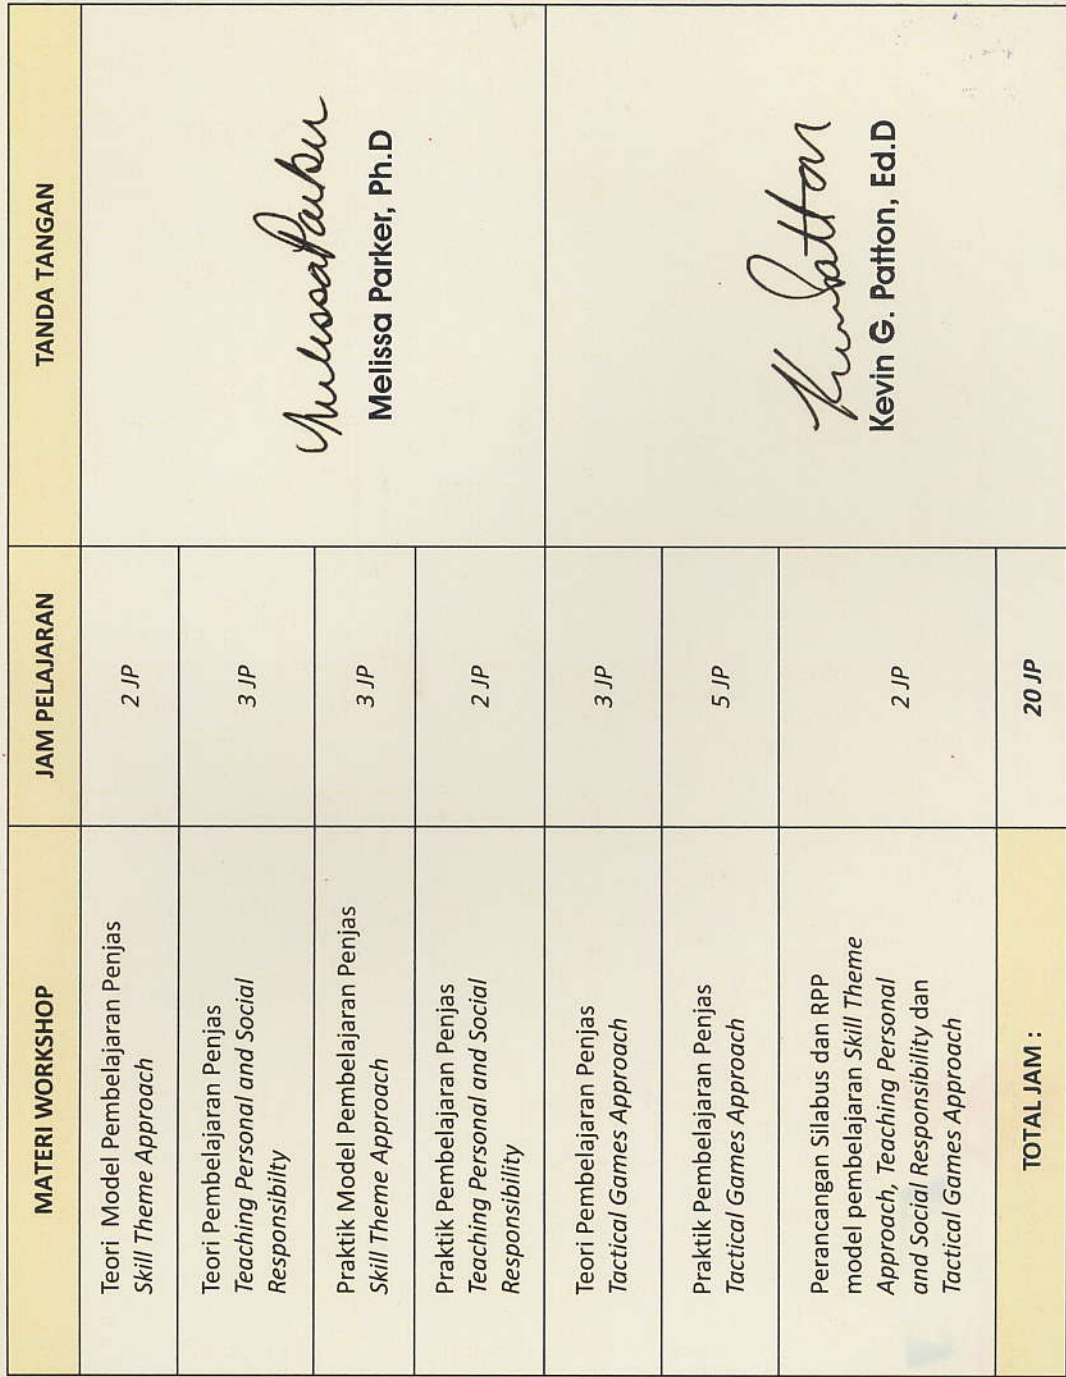 MATERI WORKSHOP
JAM PELAJARAN
TANDA TANGAN
Teori Model Pembelajaran Penjas
Skill Theme Approach
2 JP
Teori Pembelajaran Penjas
Teaching Personal and Social
Responsibilty
3 JP
Praktik Model Pembelajaran Penjas
Skill Theme Approach
3 JP
Praktik Pembelajaran Penjas
Teaching Personal and Social
Responsibility
2 JP
Melissa Parker
Melissa Parker, Ph.D
Teori Pembelajaran Penjas
Tactical Games Approach
3 JP
Praktik Pembelajaran Penjas
Tactical Games Approach
5 JP
Perancangan Silabus dan RPP
model pembelajaran Skill Theme
Approach, Teaching Personal
and Social Responsibility dan
Tactical Games Approach
2 JP
Kevin G. Patton, Ed.D
TOTAL JAM :
20 JP